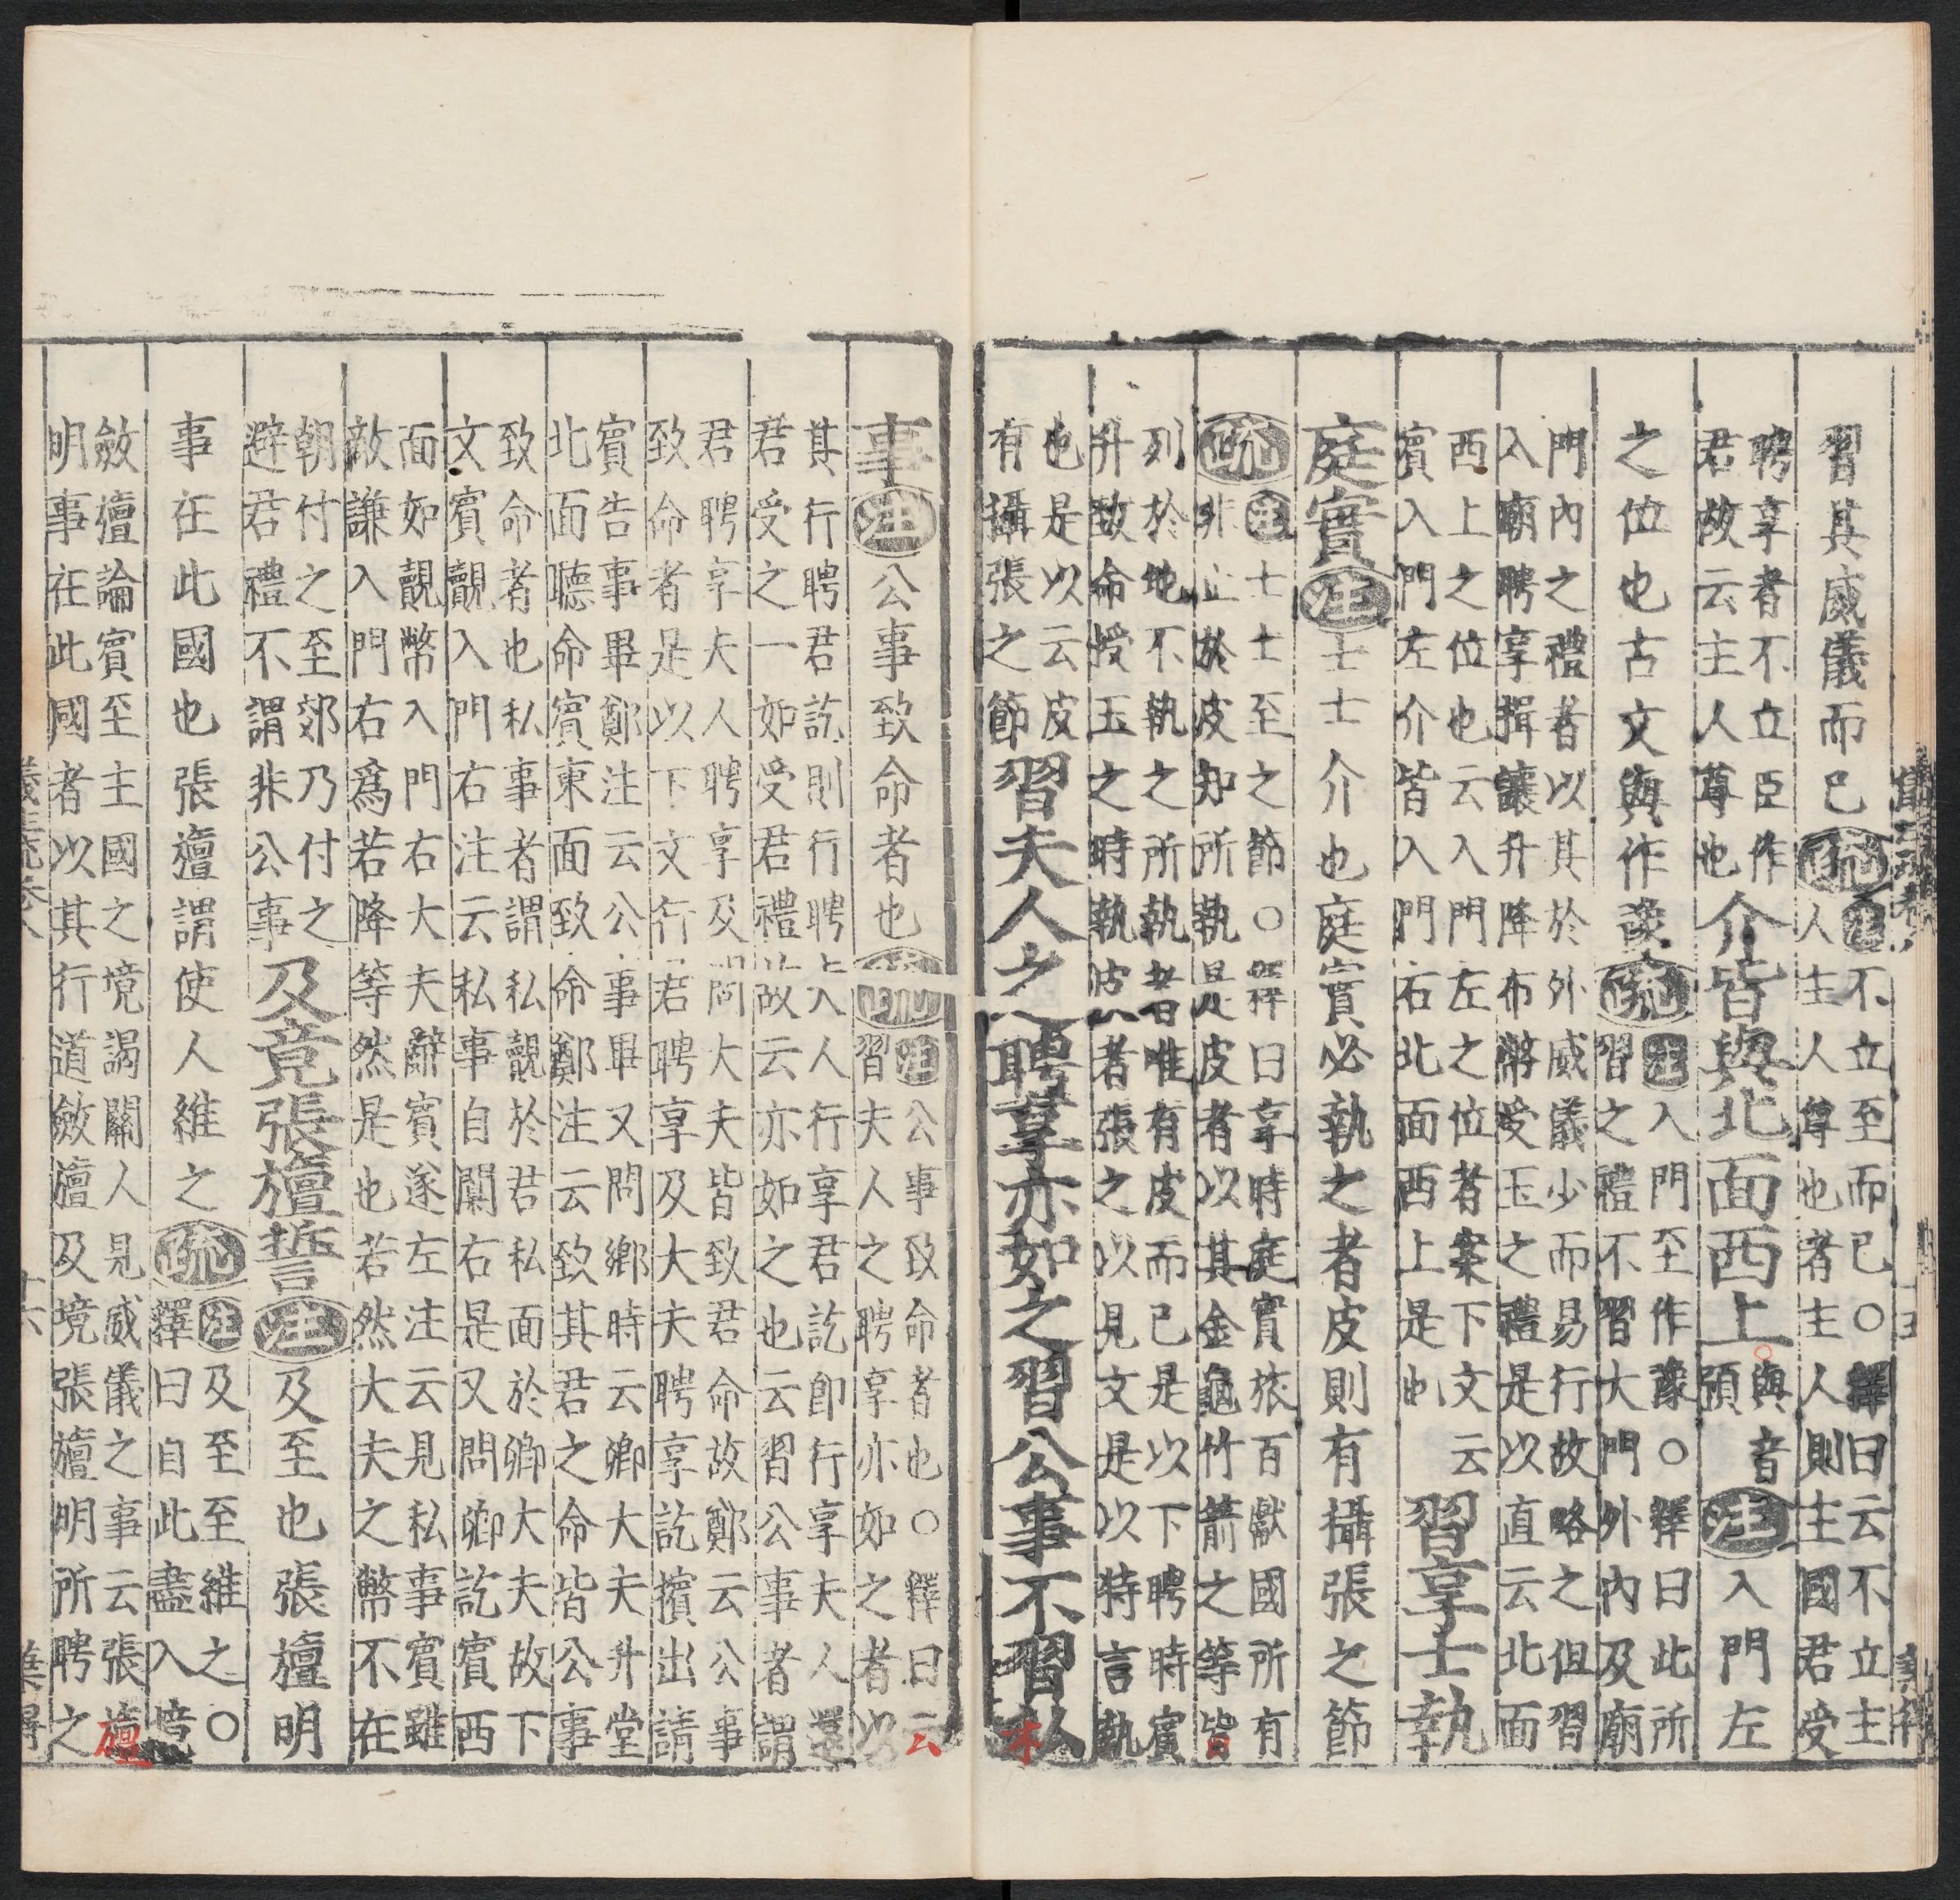 習其威儀而已疏注不立至而已○釋曰云不立主
人主人尊也者主人則主國君受
聘享者不立臣作
君故云主人尊也介皆與北面西上與音
預注入門左
之位也古文與作豫疏注入門至作豫○釋曰此所
習之禮不習大門外內及廟
門內之禮者以其於外威儀少而易行故略之但習
入廟聘享揖讓升降布幣受玉之禮是以直云北面
西上之位也云入門左之位者案下文云
賓入門左介皆入門右北面西上是也習享士執
庭實注士士介也庭實必執之者皮則有攝張之節
疏注士士至之節○釋曰享時庭實旅百獻國所有
非止於皮知所執是皮者以其金龜竹箭之等皆
列於地不執之所執者唯有皮而已是以下聘時賓
升致命授玉之時執皮者張之以見文是以特言執
也是以云皮
有攝張之節習夫人之聘享亦如之習公事不習私
事注公事致命者也疏注公事致命者也○釋曰云
習夫人之聘享亦如之者以
其行聘君訖則行聘夫人行享君訖即行享夫人還
君受之一如受君禮故云亦如之也云習公事者謂
君聘享夫人聘享及問大夫皆致君命故鄭云公事
致命者是以下文行君聘享及大夫聘享訖擯出請
賓告事畢鄭注云公事畢又問鄉時云卿大夫升堂
北面聽命賓東面致命鄭注云致其君之命皆公事
致命者也私事者謂私覿於君私面於卿大夫故下
文賓覿入門右注云私事自闑右是又問卿訖賓西
面如覿幣入門右大夫辭賓遂左注云見私事賓雖
敵謙入門右爲若降等然是也若然大夫之幣不在
朝付之至郊乃付之
避君禮不謂非公事及竟張旜誓注及至也張旜明
事在此國也張旜謂使人維之疏注及至維之○
釋曰自此盡入境
斂旜論賓至主國之境謁關人見威儀之事云張旜
明事在此國者以其行道斂旜及境張旜明所聘之